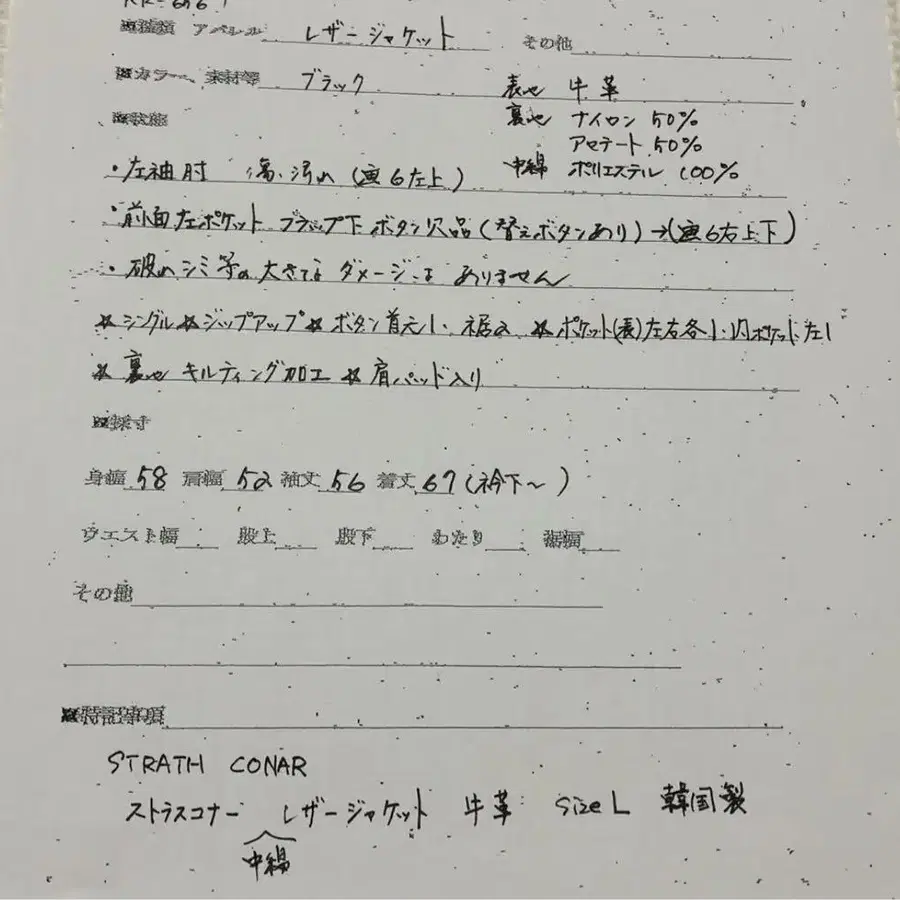 ■種類 アパレル レザージャケット その他
■カラー、素材等 ブラック 表地 牛革
裏地 ナイロン 50%
アセテート 50%
中綿 ポリエステル 100%
■状態
・左袖肘 傷、汚れ (画6左上)
・前面左ポケット フラップ下ボタン欠品(替えボタンあり)→(画6右上下)
・破れシミ等の大きなダメージはありません
★シングル★ジップアップ★ボタン首元1、裾2 ★ポケット(表)左右各1、内ポケット左1
★裏地 キルティング加工 ★肩パッド入り
■採寸
身幅 58 肩幅 52 袖丈 56 着丈 67(衿下〜)
ウエスト幅 股上 股下 わたり 裾幅
その他
■特記事項
STRATH CONAR
ストラスコナー レザージャケット 牛革 size L 韓国製
中綿